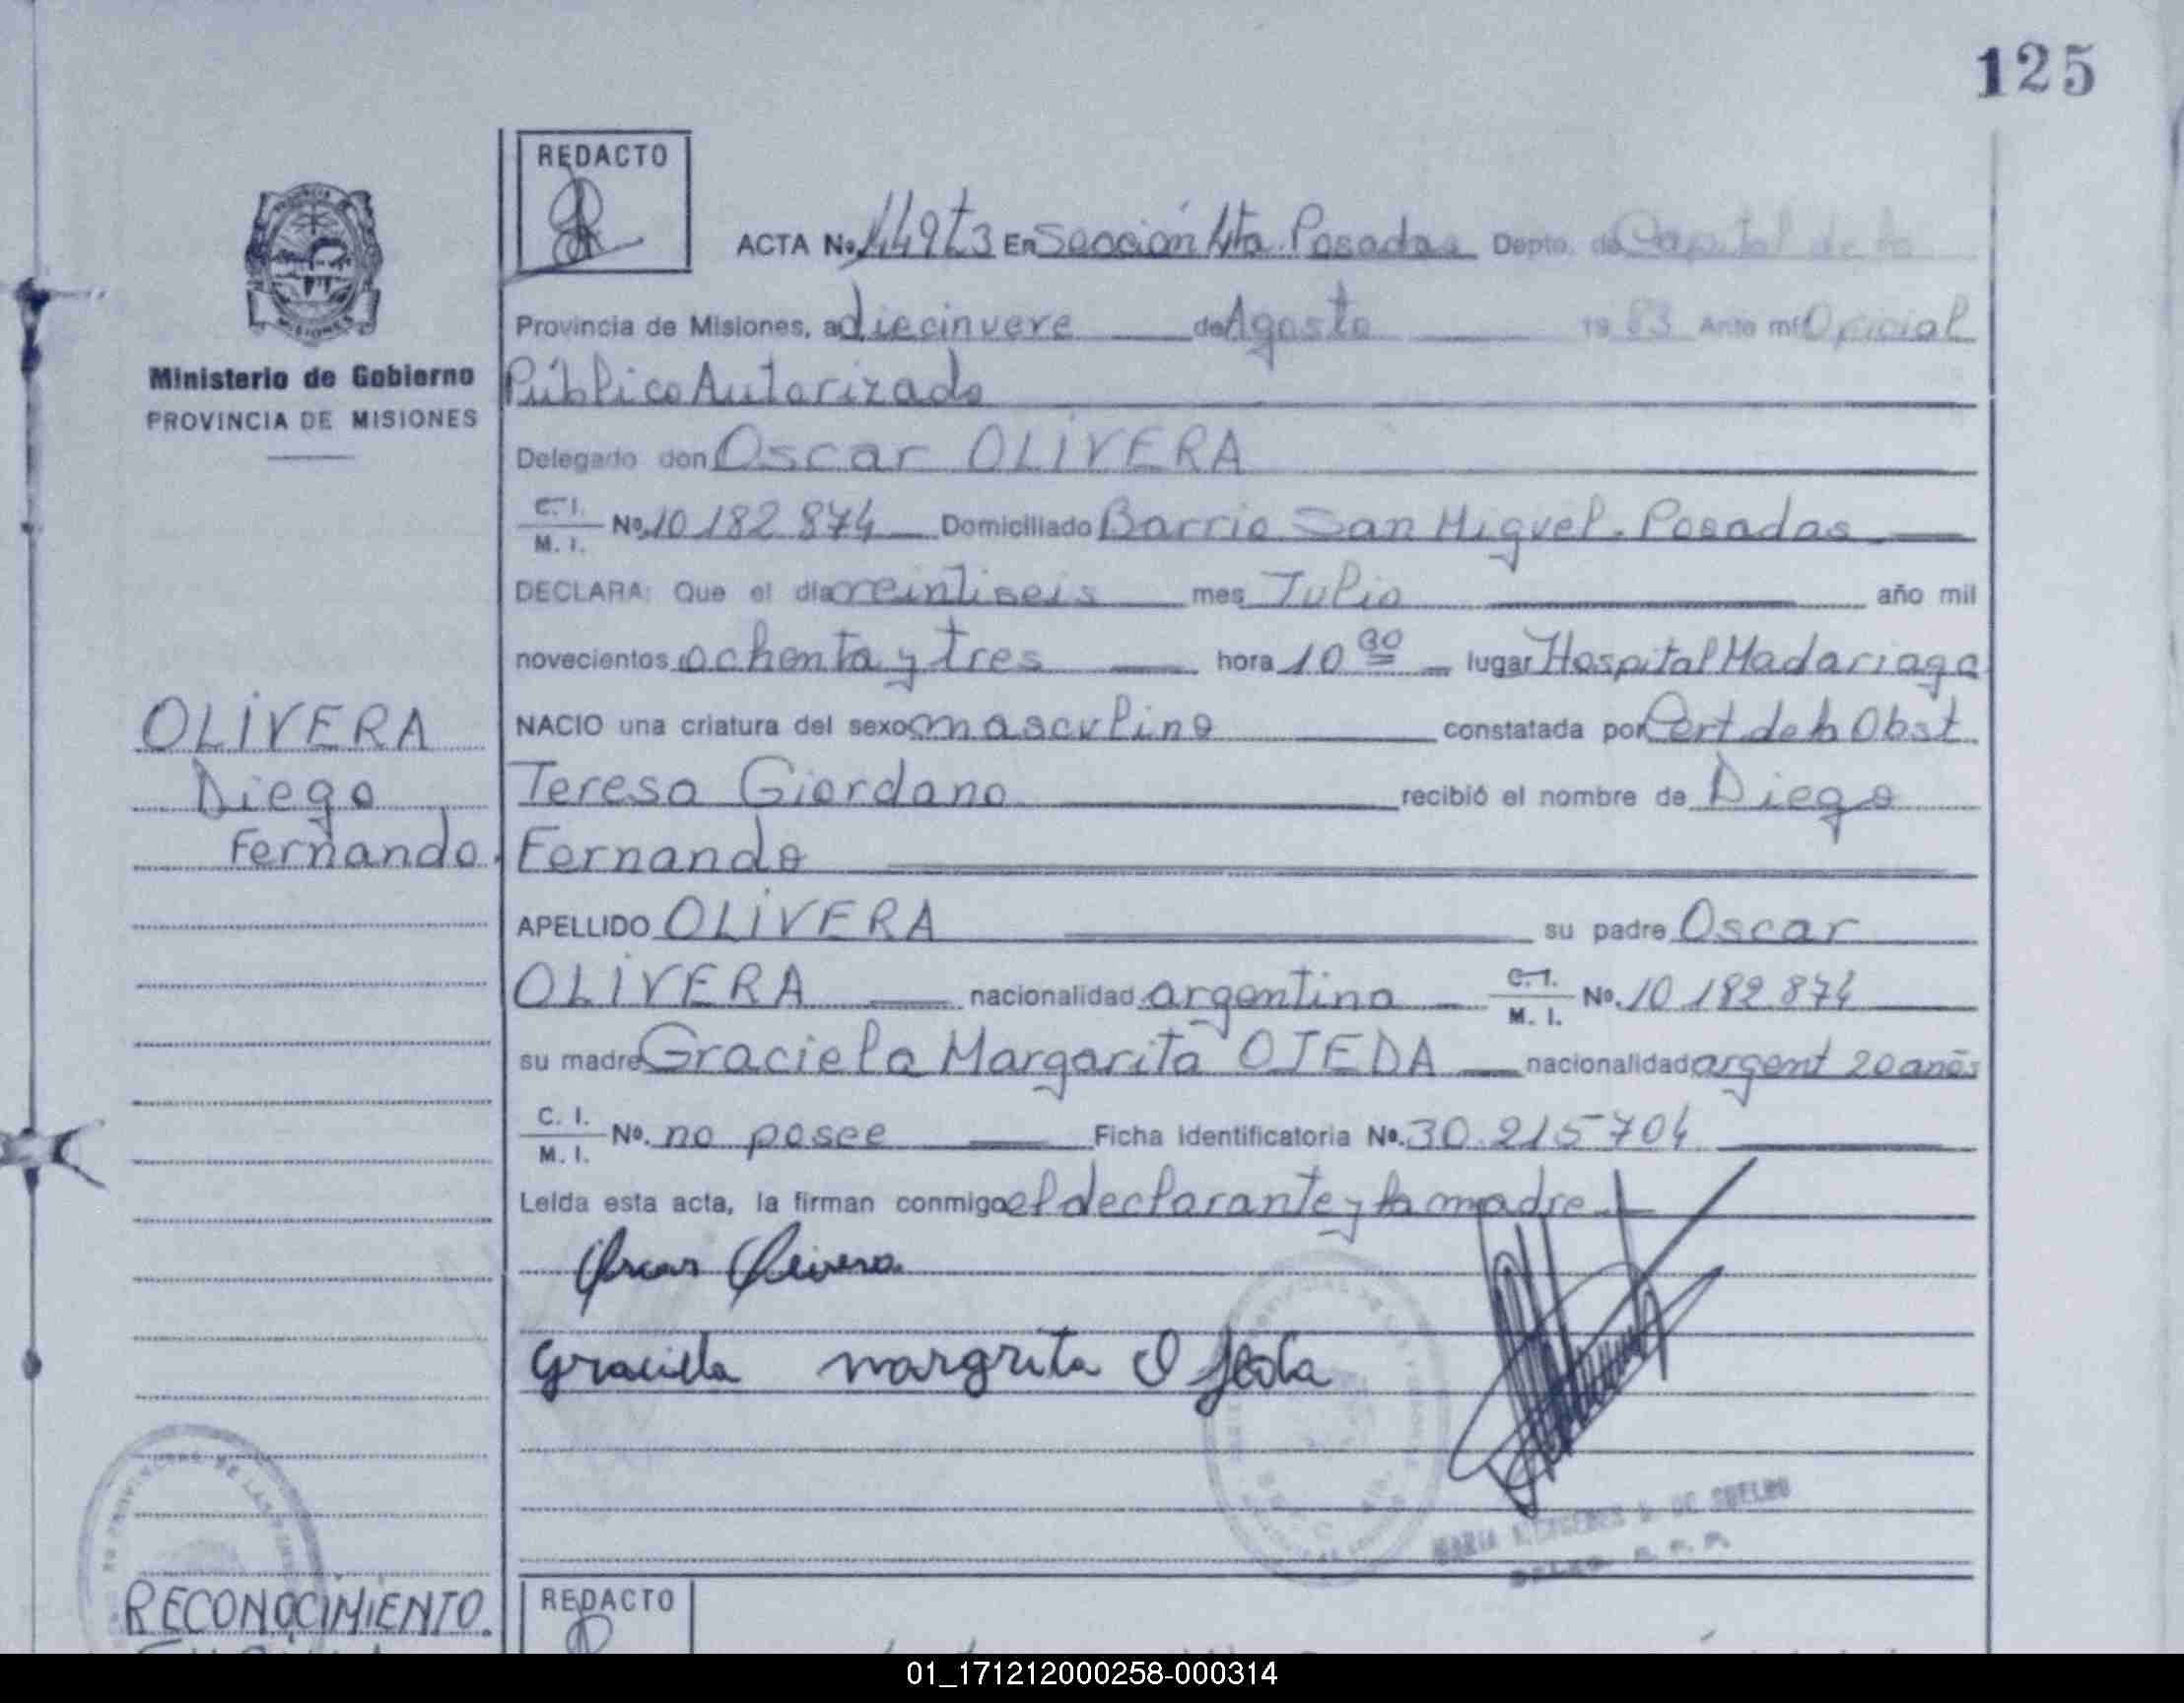 125
REDACTO
ACTA No. En Sección 4ta. Posadas Depto. de Capital de la
Provincia de Misiones, a diecinueve de Agosto 19 83 Ante mí Oficial
Público Autorizado
Ministerio de Gobierno
PROVINCIA DE MISIONES
Delegado don Oscar OLIVERA
C. I. / M. I. No. 10 182 874 Domiciliado Barrio San Miguel. Posadas
DECLARA: Que el día veintiseis mes Julio año mil
novecientos ochenta y tres hora 10 30 lugar Hospital Madariaga
OLIVERA
Diego
Fernando.
NACIO una criatura del sexo masculino constatada por Cert de la Obst
Teresa Giordano recibió el nombre de Diego
Fernando
APELLIDO OLIVERA su padre Oscar
OLIVERA nacionalidad argentina C. I. / M. I. No. 10 182 874
su madre Graciela Margarita OJEDA nacionalidad argent 20 años
C. I. / M. I. No. no posee Ficha Identificatoria No. 30.215704
Leída esta acta, la firman conmigo el declarante y la madre
Oscar Olivera
Graciella margrita Ojeda
RECONOCIMIENTO.
REDACTO
01_171212000258-000314